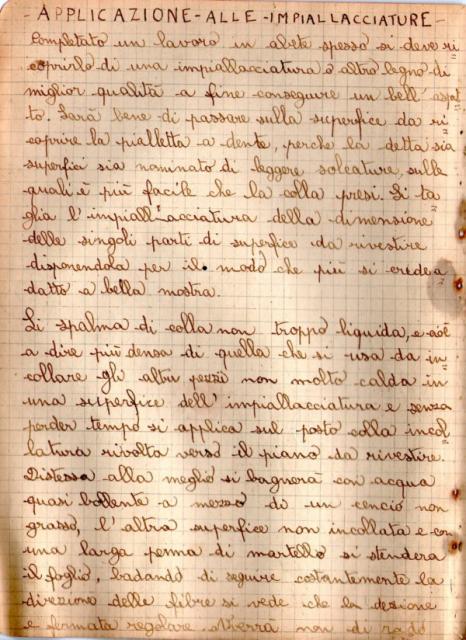 - APPLICAZIONE - ALLE - IMPIALLACCIATURE -
Completato un lavoro in abete spesso si deve ri
coprirlo di una impiallacciatura o altro legno di
miglior qualità a fine conseguire un bell'aspet
to. Sarà bene di passare sulla superfice da ri
coprire la pialletta a dente, perche la detta sia
superfici sia nominato di leggere solcature, sulle
quali è più facile che la colla presi. Si ta
glia l'impiallacciatura della dimensione
delle singoli parti di superfice da rivestire
disponendola per il modo che più si crede a
datto a bella mostra.
Si spalma di colla non troppo liquida, e cioè
a dire più densa di quella che si usa da in
collare gli altri pezzi non molto calda in
una superfice dell'impiallacciatura e senza
perder tempo si applica sul posto colla incol
latura rivolta verso il piano da rivestire.
Distessa alla meglio si bagnerà con acqua
quasi bollente a mezzo di un cencio non
grasso, l'altra superfice non incollata e con
una larga penna di martello si stendera
il foglio, badando di seguire costantemente la
direzione delle fibre si vede che la
e fermata regolare non di rado